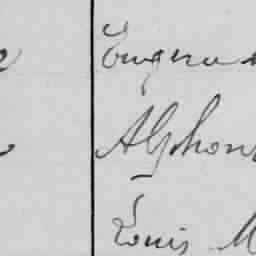 Eugene
Alphons
Louis M